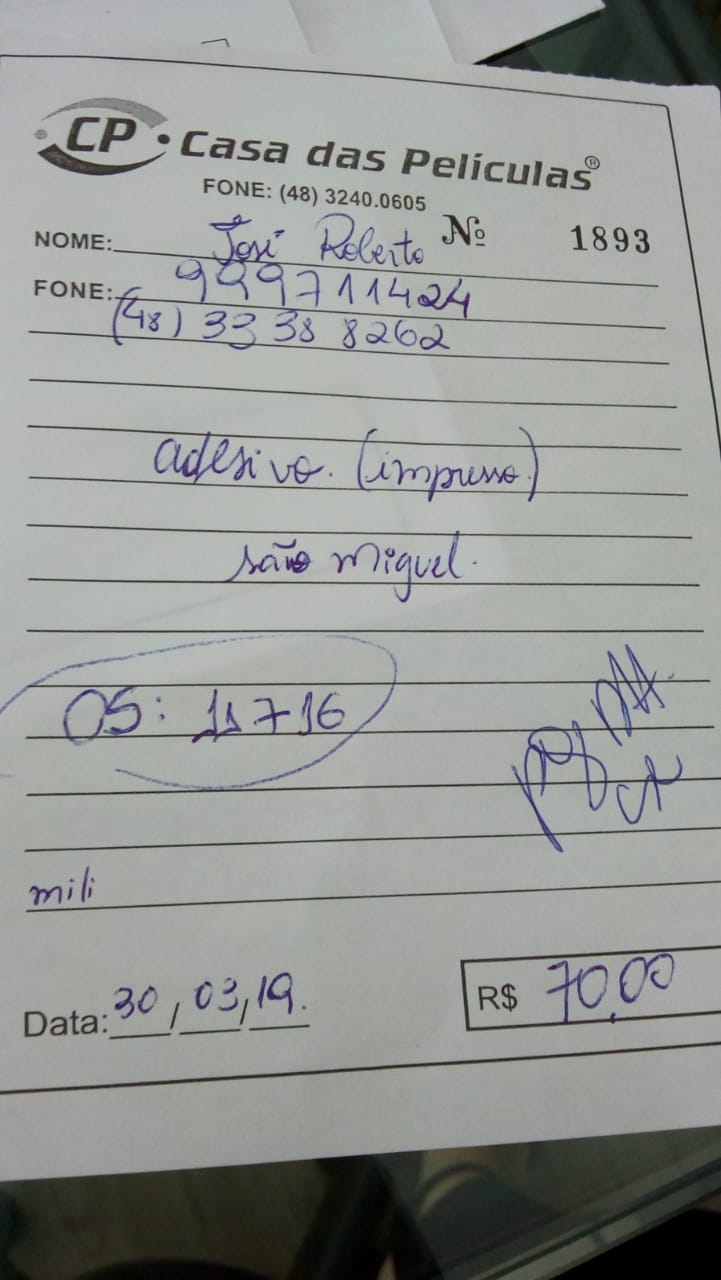 CP • Casa das Películas®
FONE: (48) 3240.0605
Nº 1893
NOME: José Roberto
FONE: 999711424
(48) 3338 8262
adesivo. (impresso.)
são miguel.
OS: 11716
mili
Data: 30/03/19.
R$ 70,00